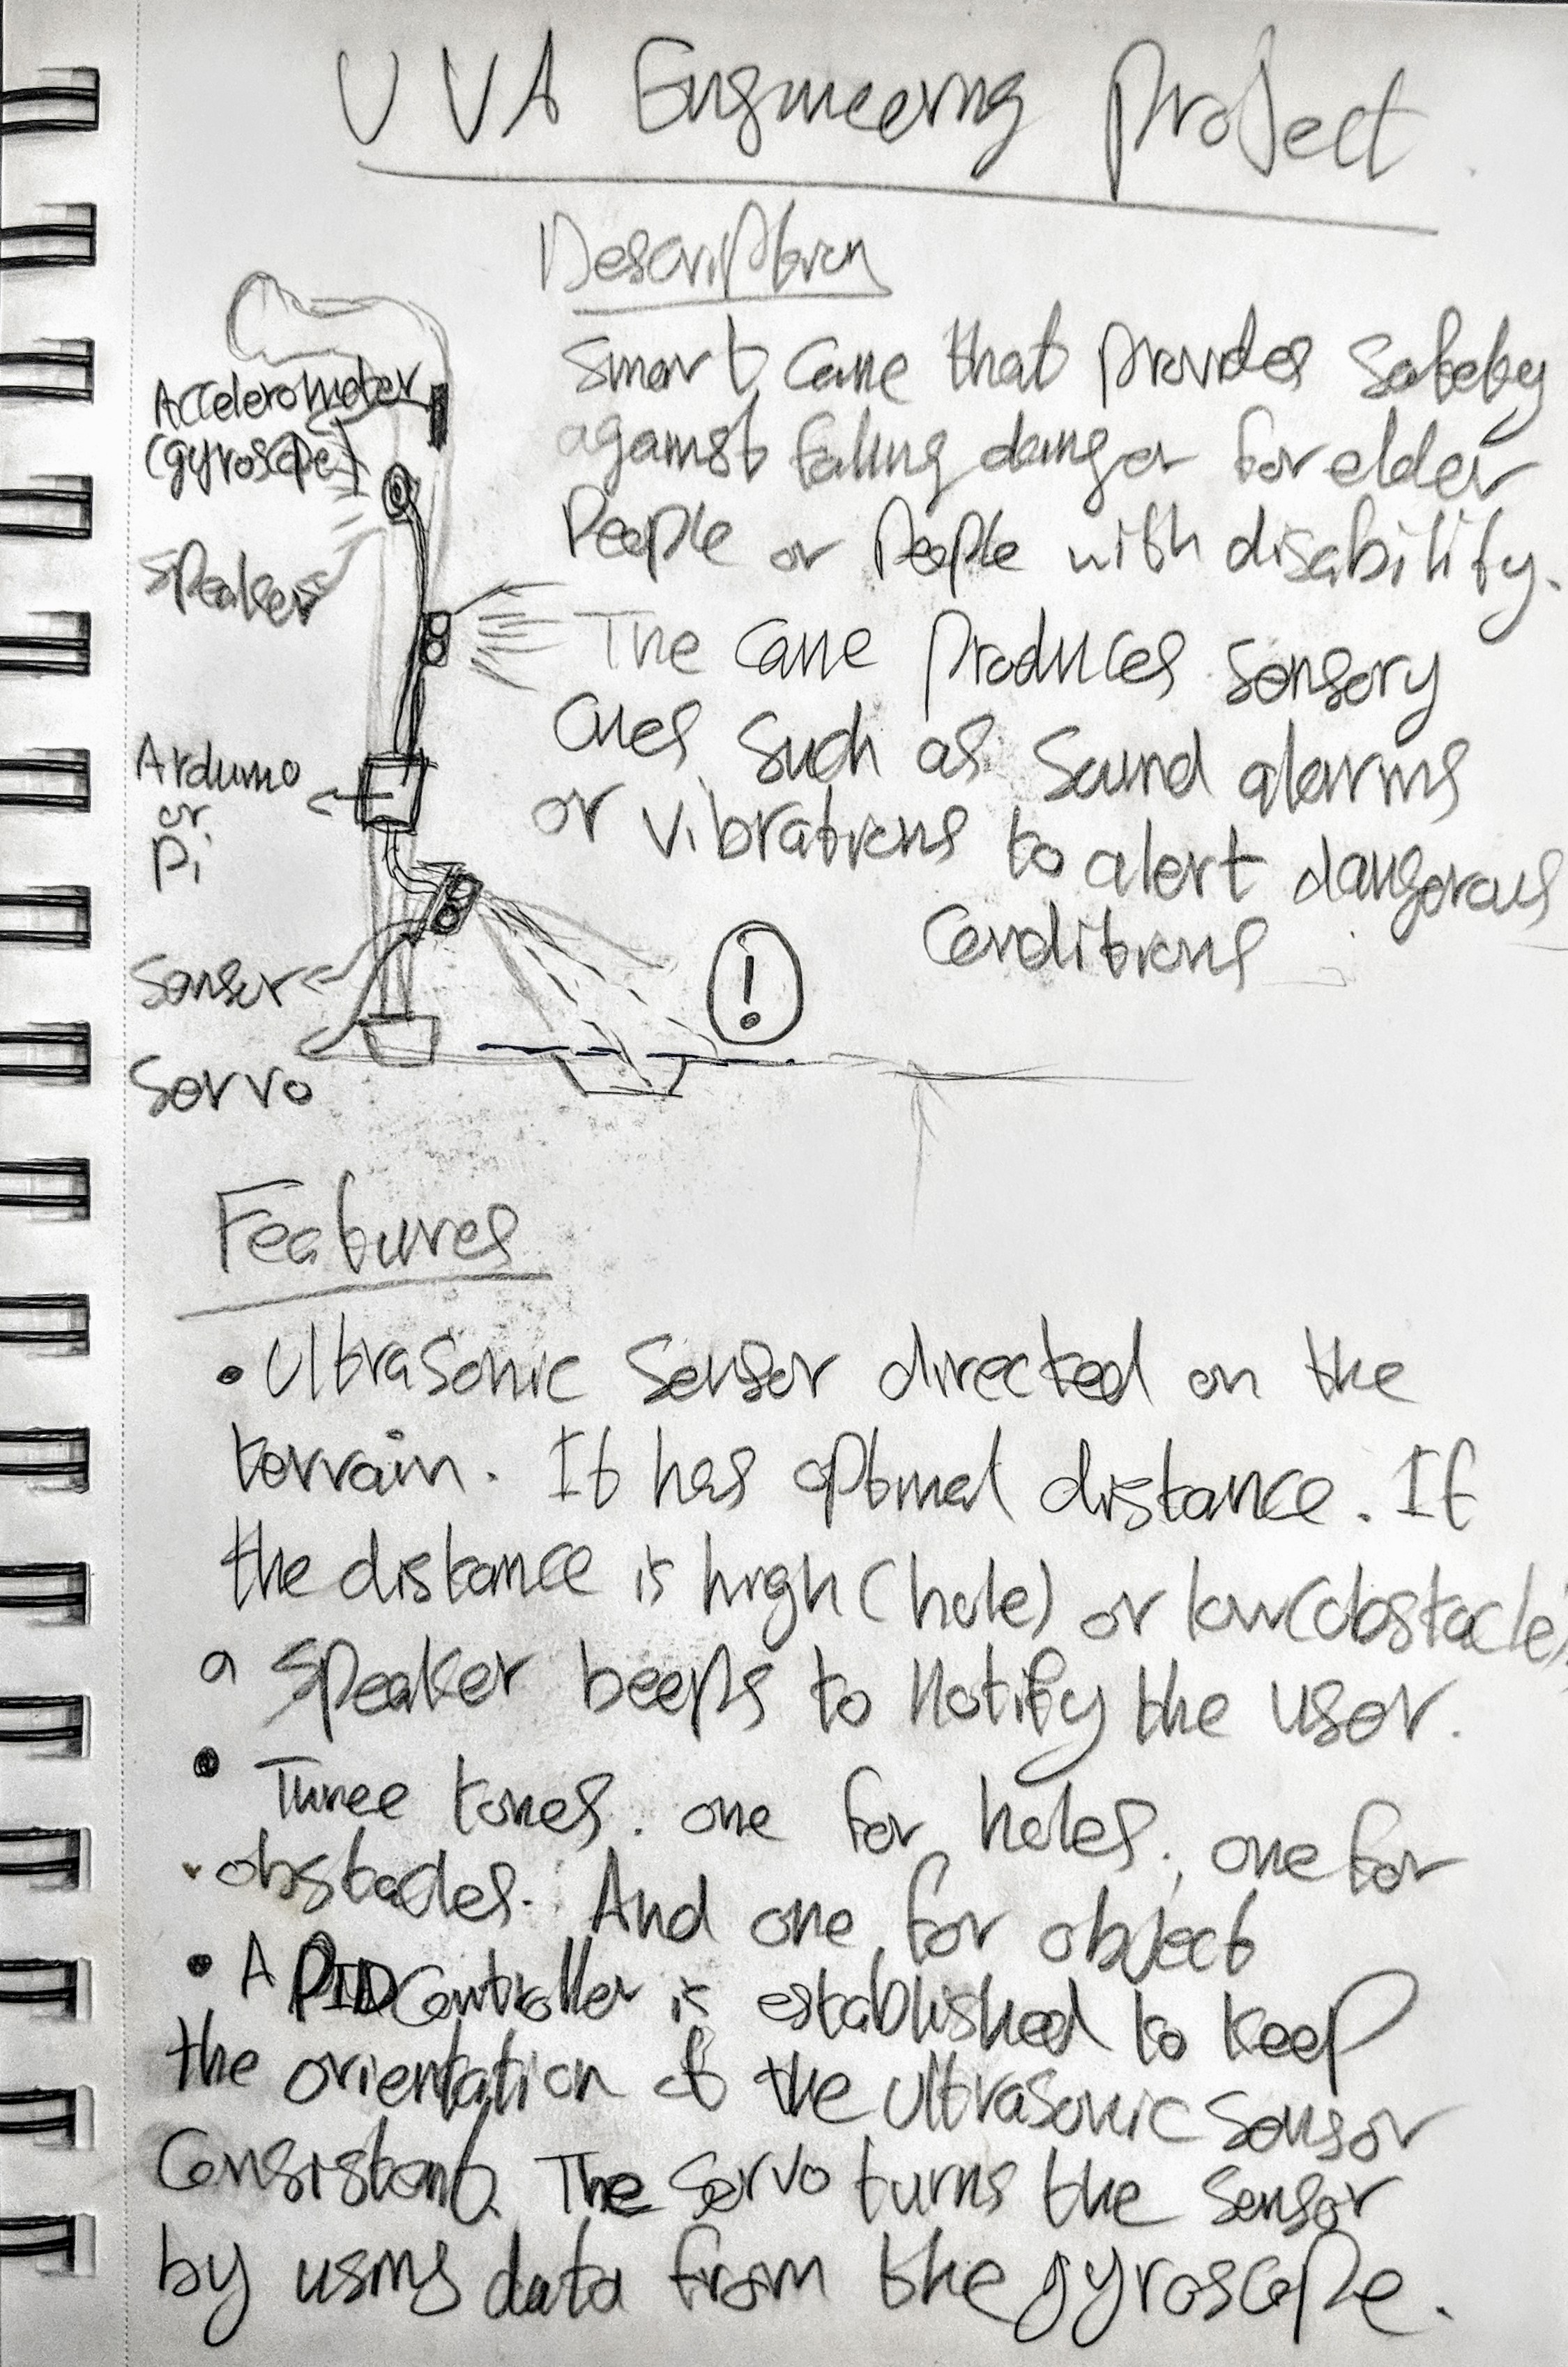 UVA Engineering Project
Description
Smart cane that provides safety
against falling danger for elder
People or People with disability.
The cane produces sensory
cues such as sound alarms
or vibrations to alert dangerous
Conditions
Accelerometer
(gyroscope)
Speakers
Arduino
or
Pi
Sensor
Servo
!
Features
• Ultrasonic Sensor directed on the
terrain. It has optimal distance. If
the distance is high (hole) or low (obstacle)
a speaker beeps to notify the user.
• Three tones. one for holes, one for
obstacles. And one for object
• A PID Controller is established to keep
the orientation of the ultrasonic sensor
Consistent. The servo turns the sensor
by using data from the gyroscope.